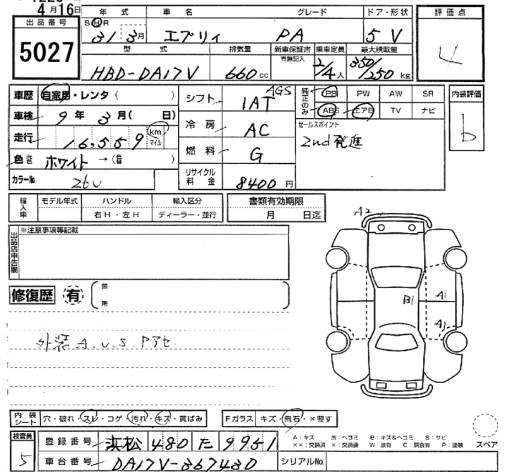 4月16日
出品番号
5027
年式 車名 グレード ドア・形状
S H R 31 3月 エブリイ PA 5 V
型式 排気量 新車保証書 乗車定員 最大積載量
有無記入
HBD-DA17V 660cc 2/4人 350/250kg
評価点
4
車歴 自家用・レンタ( )
車検 9年 3月( 日)
走行 16,559 km マイル
色替 ホワイト→(替 )
カラーNo 26U
シフト AGS 1AT
冷房 AC
燃料 G
リサイクル料金 8400円
純正のみ PS PW AW SR
ABS エアB TV ナビ
セールスポイント
2nd発進
内装評価
b
輸入車 モデル年式 ハンドル 輸入区分
右H・左H ディーラー・並行
書類有効期限
月 日迄
出品店申告欄
※注意事項等記載
修復歴 有
箇所
外装A.U.S
A2
B1 A1
A1
内装シート 穴・破れ・スレ・コゲ・汚れ・キズ・黄ばみ
Fガラス キズ・飛石・×要す
検査員
5
登録番号 浜松 480 た 9951
車台番号 DA17V-367430
シリアルNo.
スペア